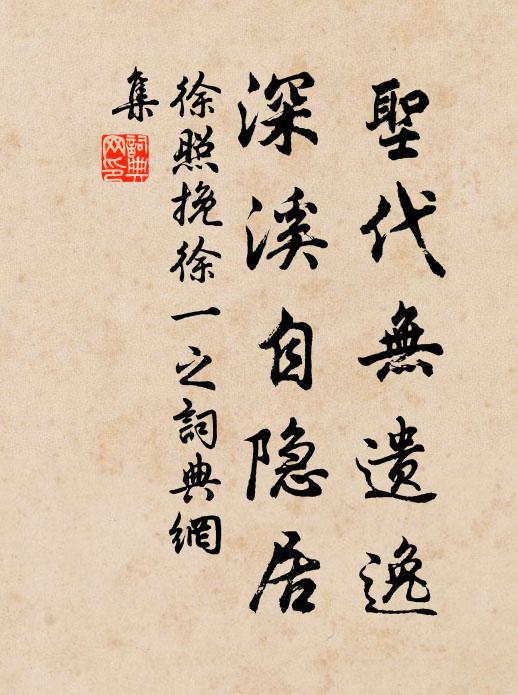 聖代無遺逸
深溪自隐居
徐照挽徐一之詞典網
集
詞典
网印